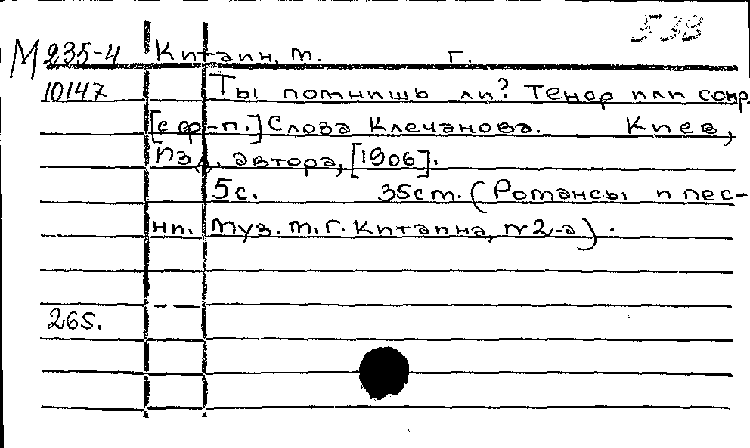 538
М 235-4 Китаин, М. Г.
10147 Ты помнишь ли? Тенор или сопр.
[с ф-п.] Слова Клечанова. Киев,
Изд. автора, [1906].
5с. 35см. (Романсы и пес-
ни. Муз. М. Г. Китаина, №2-а).
265.